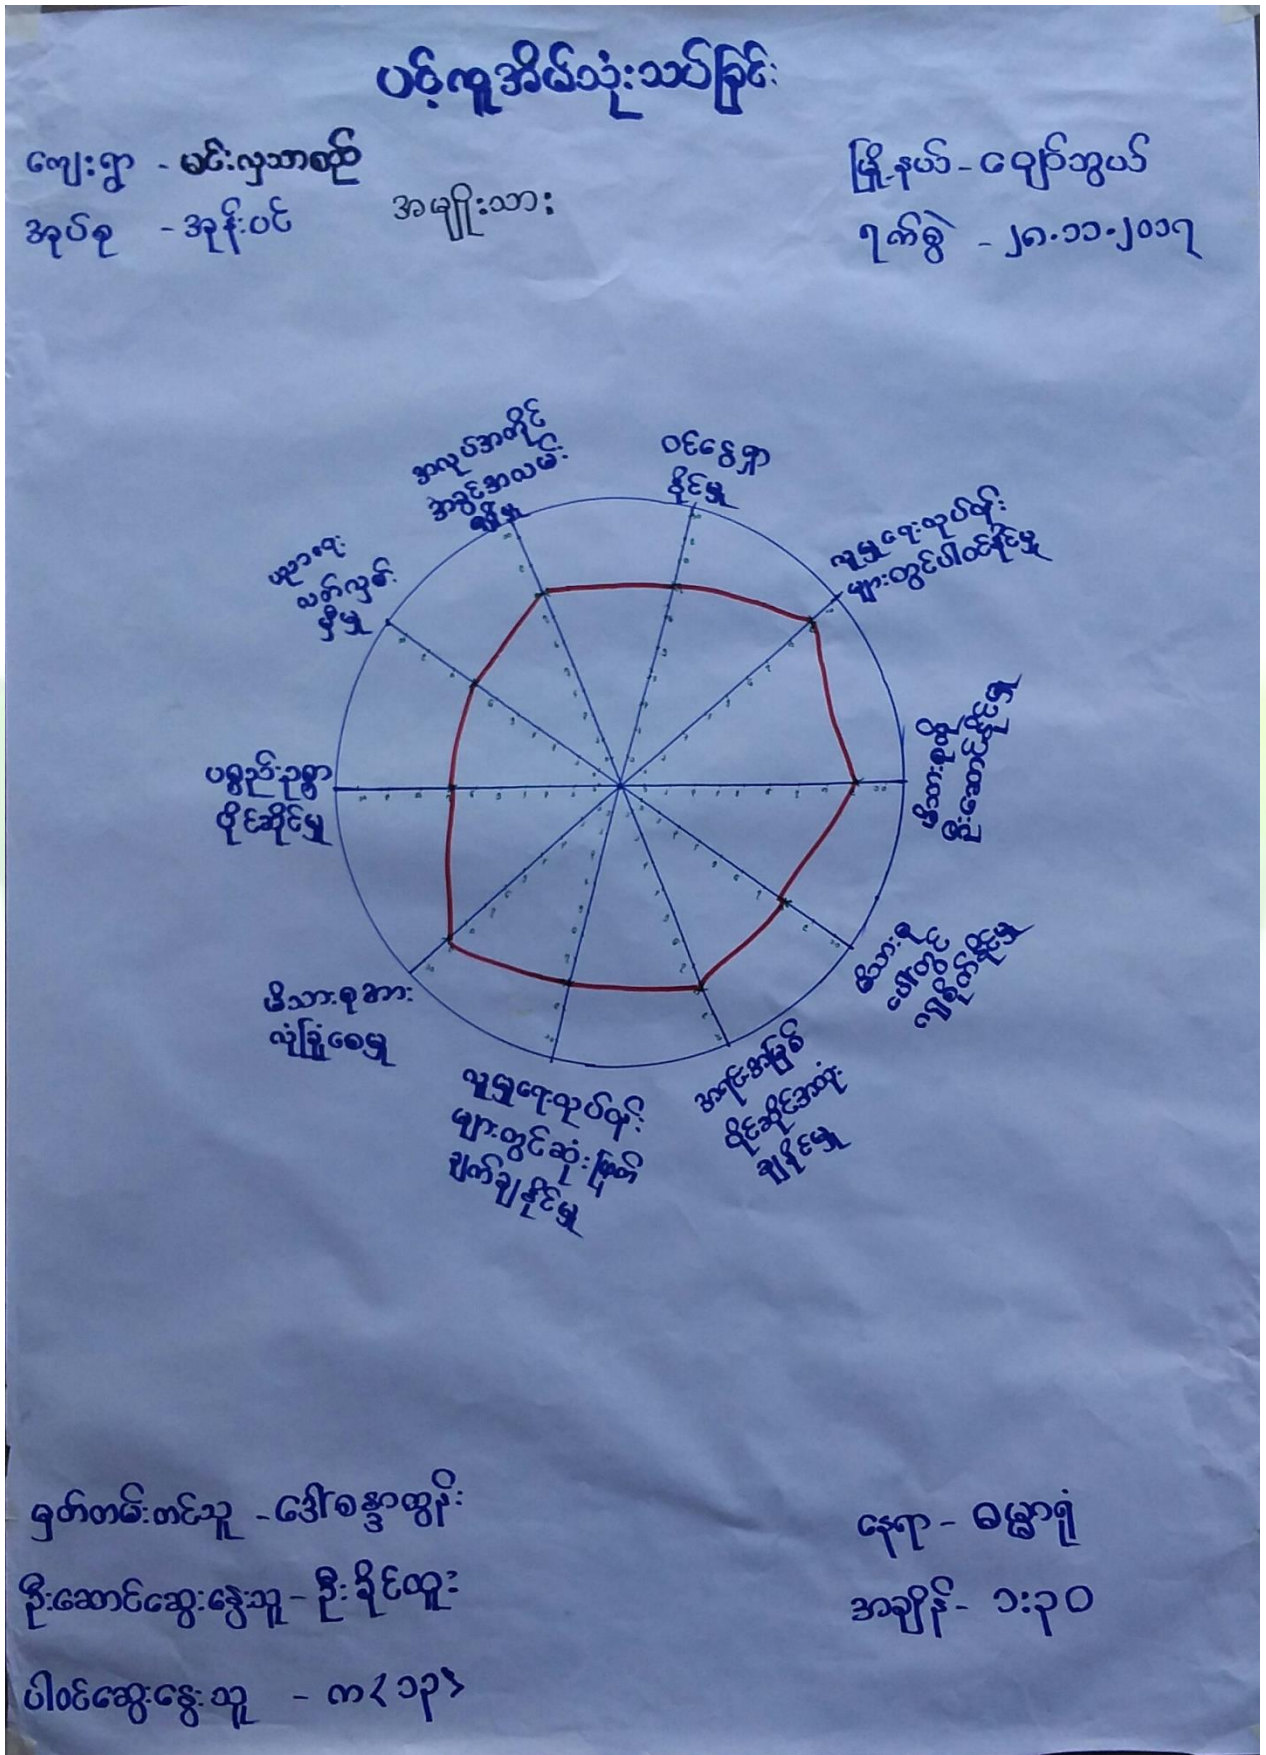 ပင့်ကူအိမ်သုံးသပ်ခြင်း
ကျေးရွာ - မင်းလှသာစည်
အုပ်စု - အုန်းပင်
အမျိုးသား
မြို့နယ် - ပျော်ဘွယ်
ရက်စွဲ - ၂၈.၁၁.၂၀၁၇
အလုပ်အကိုင်
အခွင့်အလမ်း
ရရှိမှု
ဝင်ငွေရှာ
နိုင်မှု
လူမှုရေးလုပ်ငန်း
များတွင်ပါဝင်နိုင်မှု
မိသားစုကို
ဦးဆောင်နိုင်မှု
မိသားစု
ပေါ်တွင်
အရင်းအမြစ်
ပိုင်ဆိုင်အသုံး
ချနိုင်မှု
လူမှုရေးလုပ်ငန်း
များတွင်ဆုံးဖြတ်
ချက်ချနိုင်မှု
မိသားစုအား
လုံခြုံစေမှု
ပစ္စည်းဥစ္စာ
ပိုင်ဆိုင်မှု
ပညာရေး
လက်လှမ်း
မှီမှု
မှတ်တမ်းတင်သူ - ဒေါ်စန္ဒာထွန်း
ဦးဆောင်ဆွေးနွေးသူ - ဦးခိုင်ထူး
ပါဝင်ဆွေးနွေးသူ - က <၁၃>
နေရာ - ဓမ္မာရုံ
အချိန် - ၁:၃၀